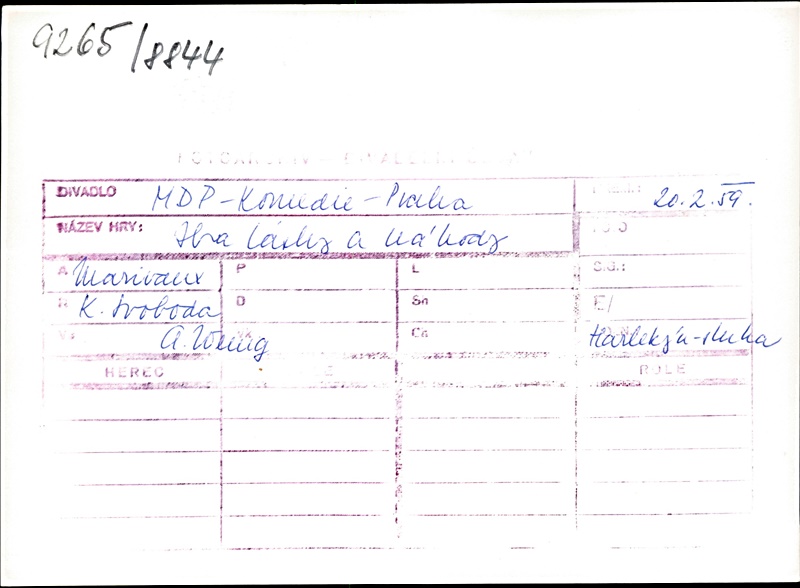 9265/8844
DIVADLO MDP-Komedie-Praha 20.2.59.
NÁZEV HRY: Hra lásky a náhody
A Marivaux P L Sig.:
R K. Svoboda D Sn E/
V: A. Wenig Ca Harlekýn-sluha
HEREC ROLE